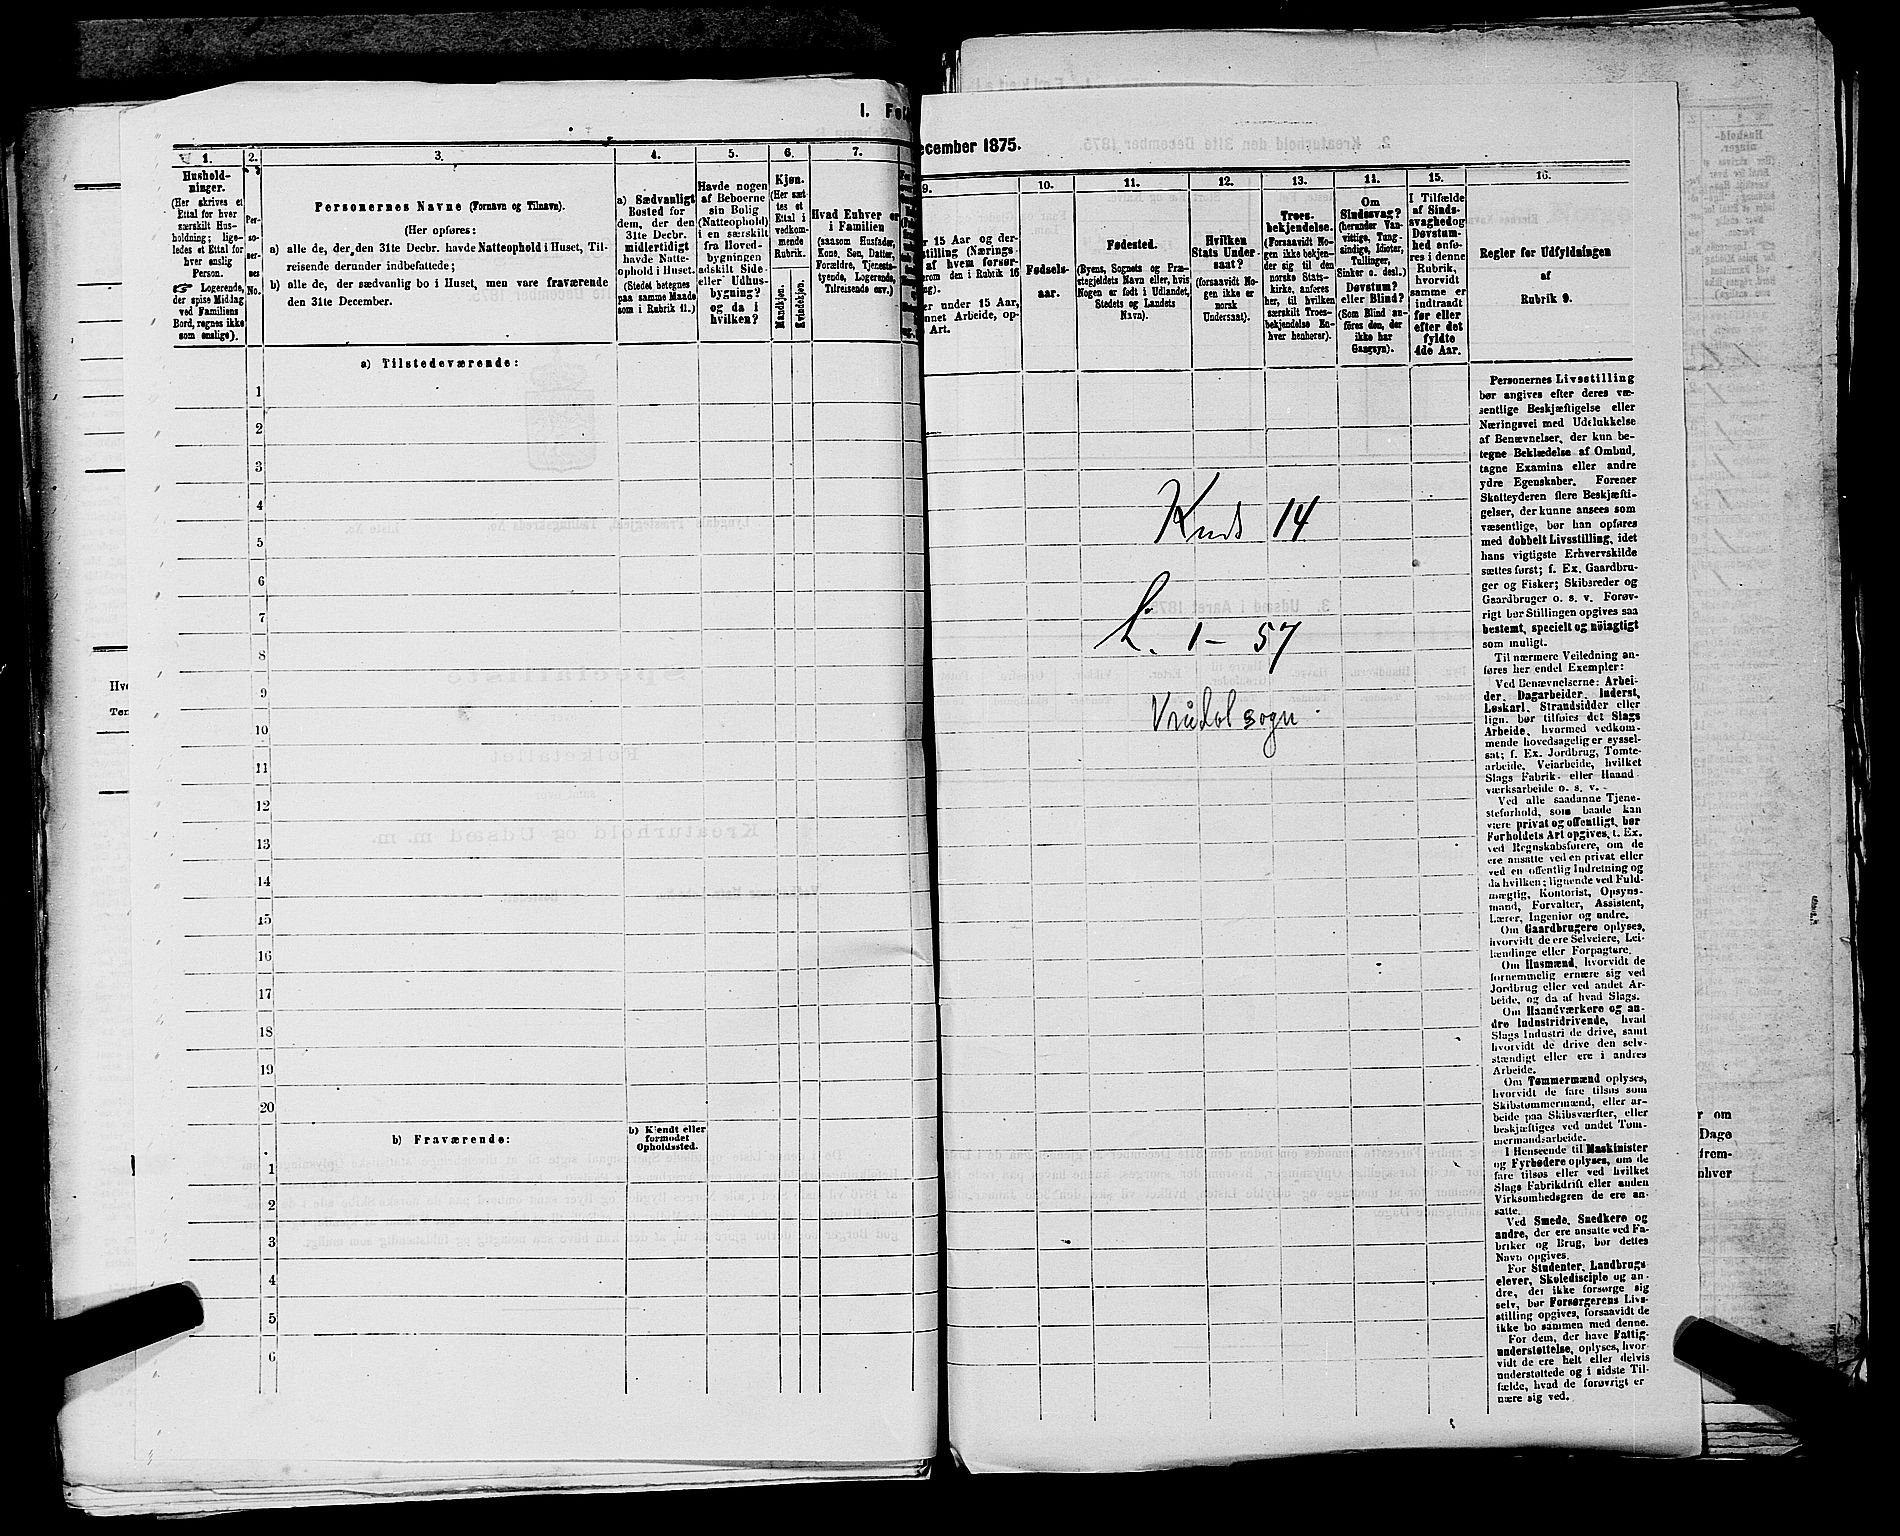 I. Fol
1.
Hushold-
ninger.
(Her skrives et
Ettal for hver
særskilt Hus-
holdning; lige-
ledes et Ettal for
hver enslig
Person.
☞ Logerende,
der spise Middag
ved Familiens
Bord, regnes ikke
som enslige).
2.
Per-
so-
ner-
nes
No.
3.
Personernes Navne (Fornavn og Tilnavn).
(Her opføres:
a) alle de, der den 31te Decbr. havde Natteophold i Huset, Til-
reisende derunder indbefattede;
b) alle de, der sædvanlig bo i Huset, men vare fraværende
den 31te December.
4.
a) Sædvanligt
Bosted for
dem, der den
31te Decbr.
midlertidigt
havde Natte-
ophold i Huset.
(Stedet betegnes
paa samme Maade
som i Rubrik 11.)
5.
Havde nogen
af Beboerne
sin Bolig
(Natteophold)
i en særskilt
fra Hoved-
bygningen
adskilt Side-
eller Udhus-
bygning?
og da i
hvilken?
6.
Kjøn.
(Her sæt-
tes et
Ettal i
vedkom-
mende
Rubrik.
Mandkjøn.
Kvindekjøn.
7.
Hvad Enhver er
i Familien
(saasom Husfader,
Kone, Søn, Datter,
Forældre, Tjeneste-
tyende, Logerende,
Tilreisende osv.)
a) Tilstedeværende:
1
2
3
4
5
6
7
8
9
10
11
12
13
14
15
16
17
18
19
20
b) Fraværende:
b) Kjendt eller
formodet
Opholdssted.
1
2
3
4
5
6
ecember 1875.
9.
r 15 Aar og der-
stilling (Nærings-
af hvem forsør-
erom den i Rubrik 16
ng).
er under 15 Aar,
nnet Arbeide, op-
Art.
10.
Fødsels-
aar.
11.
Fødested.
(Byens, Sognets og Præ-
stegjeldets Navn eller, hvis
Nogen er født i Udlandet,
Stedets og Landets
Navn).
12.
Hvilken
Stats Under-
saat?
(forsaavidt No-
gen ikke er
norsk
Undersaat).
13.
Troes-
bekjendelse.
(Forsaavidt No-
gen ikke bekjen-
der sig til den
norske Stats-
kirke, anføres
her, til hvilken
særskilt Troes-
bekjendelse En-
hver henhører).
14.
Om
Sindssvag?
(herunder Van-
vittige, Tung-
sindige, Idioter,
Tullinger,
Sinker o. desl.)
Døvstum?
eller Blind?
(Som Blind an-
føres den, der
ikke har
Gangsyn).
15.
I Tilfælde
af Sinds-
svaghed og
Døvstum-
hed anfø-
res i denne
Rubrik,
hvorvidt
samme er
indtraadt
før eller
efter det
fyldte
4de Aar.
16.
Regler for Udfyldningen
af
Rubrik 9.
Personernes Livsstilling
bør angives efter deres væ-
sentlige Beskjæftigelse eller
Næringsvei med Udelukkelse
af Benævnelser, der kun be-
tegne Beklædelse af Ombud,
tagne Examina eller andre
ydre Egenskaber. Forener
Skatteyderen flere Beskjæfti-
gelser, der kunne ansees som
væsentlige, bør han opføres
med dobbelt Livsstilling, idet
hans vigtigste Erhvervskilde
sættes først; f. Ex. Gaardbru-
ger og Fisker; Skibsreder og
Gaardbruger o. s. v. Forøv-
rigt bør Stillingen opgives saa
bestemt, specielt og nøiagtigt
som muligt.
Til nærmere Veiledning an-
føres her endel Exempler:
Ved Benævnelserne: Arbei-
der, Dagarbeider, Inderst,
Løskarl, Strandsidder eller
lign. bør tilføies det Slags
Arbeide, hvormed vedkom-
mende hovedsagelig er syssel-
sat; f. Ex. Jordbrug, Tomte-
arbeide, Veiarbeide, hvilket
Slags Fabrik- eller Haand-
værksarbeide o. s. v.
Ved alle saadanne Tjene-
steforhold, som baade kan
være privat og offentligt, bør
Forholdets Art opgives, t. Ex.
ved Regnskabsførere, om de
ere ansatte ved en privat eller
ved en offentlig Indretning og
da hvilken; lignende ved Fuld-
mægtig, Kontorist, Opsyns-
mand, Forvalter, Assistent,
Lærer, Ingeniør og andre.
Om Gaardbrugere oplyses,
hvorvidt de ere Selveiere, Lei-
lændinge eller Forpagtere.
Om Husmænd, hvorvidt de
fornemmelig ernære sig ved
Jordbrug eller ved andet Ar-
beide, og da af hvad Slags.
Om Haandværkere og an-
dre Industridrivende, hvad
Slags Industri de drive, samt
hvorvidt de drive den selv-
stændigt eller ere i andres
Arbeide.
Om Tømmermænd oplyses,
hvorvidt de fare tilsøs som
Skibstømmermænd, eller ar-
beide paa Skibsværfter, eller
beskjæftiges ved andet Tøm-
mermandsarbeide.
I Henseende til Maskinister
og Fyrbødere oplyses, om de
fare tilsøs eller ved hvilket
Slags Fabrikdrift eller anden
Virksomhedsgren de ere an-
satte.
Ved Smede, Snedkere og
andre, der ere ansatte ved Fa-
briker og Brug, bør dettes
Navn opgives.
For Studenter, Landbrugs-
elever, Skoledisciple og an-
dre, der ikke forsørge sig
selv, bør Forsørgerens Livs-
stilling opgives, forsaavidt de
ikke bo sammen med denne.
For dem, der have Fattig-
understøttelse, oplyses, hvor-
vidt de ere helt eller delvis
understøttede og i sidste Til-
fælde, hvad de forøvrigt er
nære sig ved.
Kreds 14
L. 1 – 57
Vrådal sogn.
Hve
Tor
r om
Dage
frem-
nhver